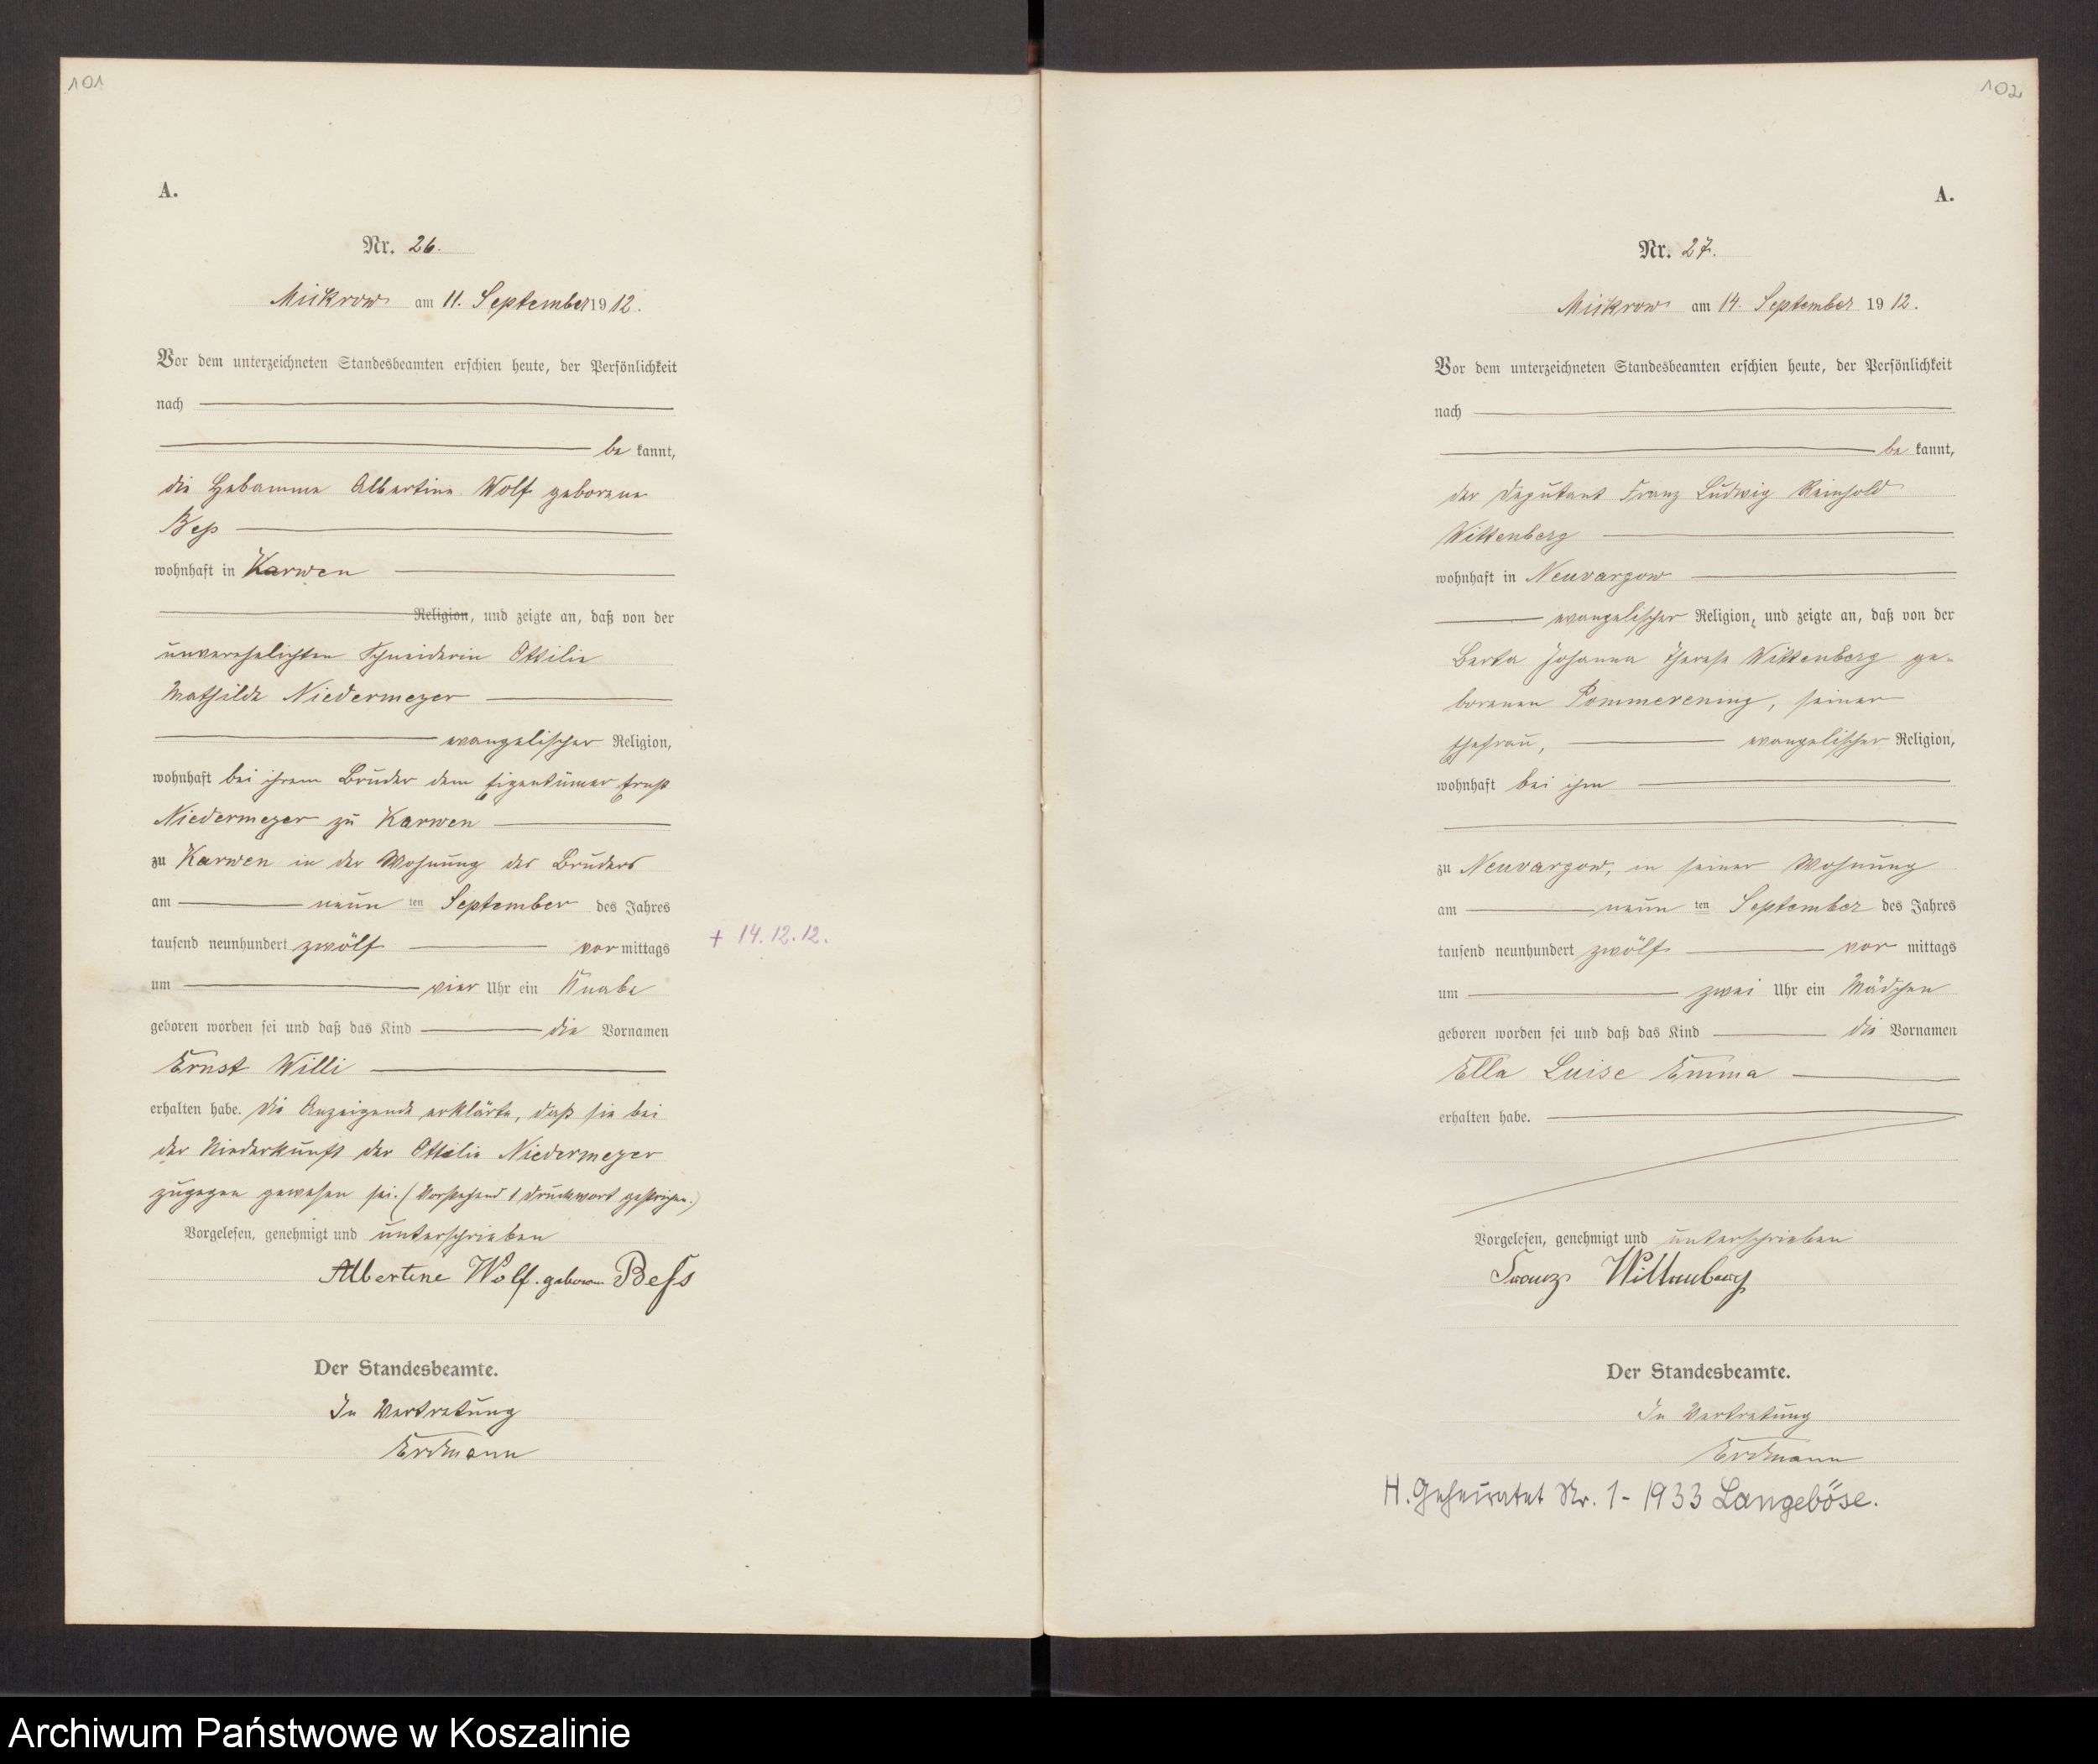 101
A.
Nr. 26.
Mickrow am 11. September 1912.
Vor dem unterzeichneten Standesbeamten erschien heute, der Persönlichkeit
nach
be kannt,
die Hebamme Albertine Wolf geborene
Beß
wohnhaft in Karwen
Religion, und zeigte an, daß von der
unverehelichten Schneiderin Ottilie
Mathilde Niedermeyer
evangelischer Religion,
wohnhaft bei ihrem Bruder dem Eigentümer Ernst
Niedermeyer zu Karwen
zu Karwen in der Wohnung des Bruders
am neun ten September des Jahres
tausend neunhundert zwölf vor mittags
um vier Uhr ein Knabe
geboren worden sei und daß das Kind die Vornamen
Ernst Willi
erhalten habe. Die Anzeigende erklärte, daß sie bei
der Niederkunft der Ottilie Niedermeyer
zugegen gewesen sei. (Vorstehend 1 Druckwort gestrichen.)
Vorgelesen, genehmigt und unterschrieben
Albertine Wolf. geborene Bess
Der Standesbeamte.
In Vertretung
Erdmann
+ 14.12.12.
102
A.
Nr. 27.
Mickrow am 14. September 1912.
Vor dem unterzeichneten Standesbeamten erschien heute, der Persönlichkeit
nach
be kannt,
der Deputant Franz Ludwig Reinhold
Wittenberg
wohnhaft in Neuvargow
evangelischer Religion, und zeigte an, daß von der
Berta Johanna Therese Wittenberg ge-
borenen Pommerening, seiner
Ehefrau, evangelischer Religion,
wohnhaft bei ihm
zu Neuvargow, in seiner Wohnung
am neun ten September des Jahres
tausend neunhundert zwölf vor mittags
um zwei Uhr ein Mädchen
geboren worden sei und daß das Kind die Vornamen
Ella Luise Emma
erhalten habe.
Vorgelesen, genehmigt und unterschrieben
Franz Wittenberg
Der Standesbeamte.
In Vertretung
Erdmann
H. Geheiratet Nr. 1 - 1933 Langeböse.
Archiwum Państwowe w Koszalinie